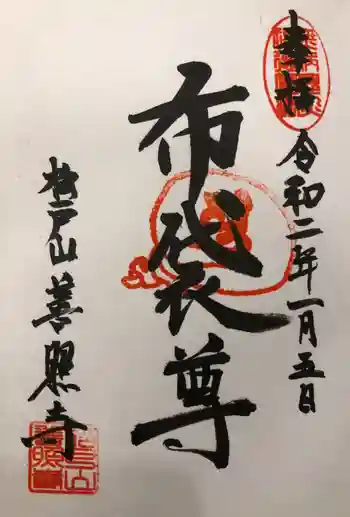 奉拝
令和二年一月五日
布袋尊
桧戸山 善照寺